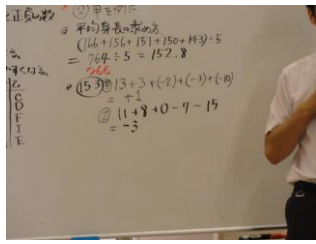 正負の数
平均身長の求め方
(166+156+151+150+143)÷5
= 764÷5 = 152.8
766
153 ① 13+3+(-2)+(-3)+(-10)
= +1
② 11+8+0-7-15
= -3
C
D
F
I
E